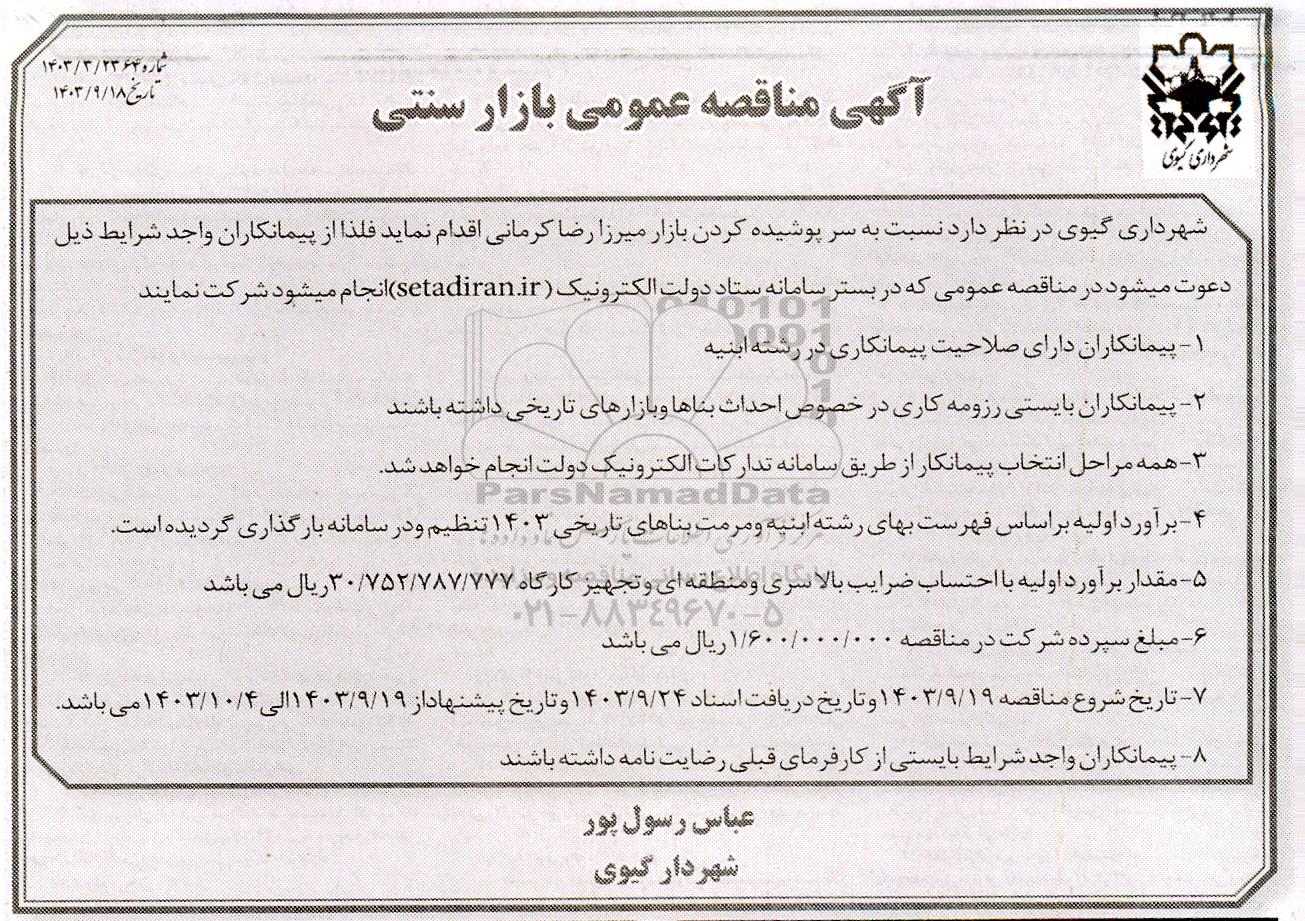 شماره ۱۴۰۳/۳/۲۳۶۴
تاریخ ۱۴۰۳/۹/۱۸
شهرداری گیوی
آگهی مناقصه عمومی بازار سنتی
شهرداری گیوی در نظر دارد نسبت به سر پوشیده کردن بازار میرزا رضا کرمانی اقدام نماید فلذا از پیمانکاران واجد شرایط ذیل
دعوت میشود در مناقصه عمومی که در بستر سامانه ستاد دولت الکترونیک (setadiran.ir) انجام میشود شرکت نمایند
۱- پیمانکاران دارای صلاحیت پیمانکاری در رشته ابنیه
۲- پیمانکاران بایستی رزومه کاری در خصوص احداث بناها وبازارهای تاریخی داشته باشند
۳- همه مراحل انتخاب پیمانکار از طریق سامانه تدارکات الکترونیک دولت انجام خواهد شد.
۴- برآورد اولیه بر اساس فهرست بهای رشته ابنیه ومرمت بناهای تاریخی ۱۴۰۳ تنظیم ودر سامانه بارگذاری گردیده است.
۵- مقدار برآورد اولیه با احتساب ضرایب بالاسری ومنطقه ای وتجهیز کارگاه ۳۰/۷۵۲/۷۸۷/۷۷۷ ریال می باشد
۶- مبلغ سپرده شرکت در مناقصه ۱/۶۰۰/۰۰۰/۰۰۰ ریال می باشد
۷- تاریخ شروع مناقصه ۱۴۰۳/۹/۱۹ وتاریخ دریافت اسناد ۱۴۰۳/۹/۲۴ وتاریخ پیشنهاداز ۱۴۰۳/۹/۱۹ الی ۱۴۰۳/۱۰/۴ می باشد.
۸- پیمانکاران واجد شرایط بایستی از کارفرمای قبلی رضایت نامه داشته باشند
عباس رسول پور
شهردار گیوی
ParsNamadData
۰۲۱-۸۸۳۴۹۶۷۰-۵